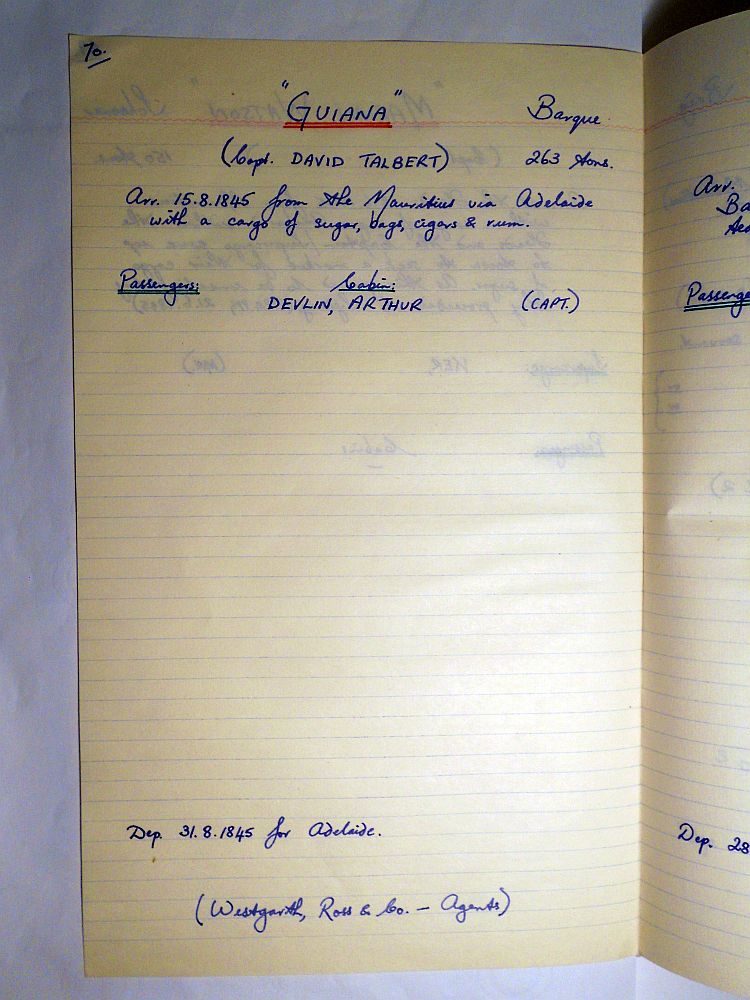 70.
"GUIANA" Barque
(Capt. DAVID TALBERT) 263 tons.
Arr. 15.8.1845 from the Mauritius via Adelaide
with a cargo of sugar, bags, cigars & rum.
Passengers: Cabin:
DEVLIN, ARTHUR (CAPT.)
Dep. 31.8.1845 for Adelaide.
(Westgarth, Ross & Co. — Agents)
Arr.
Ba
Passenge
Dep. 28